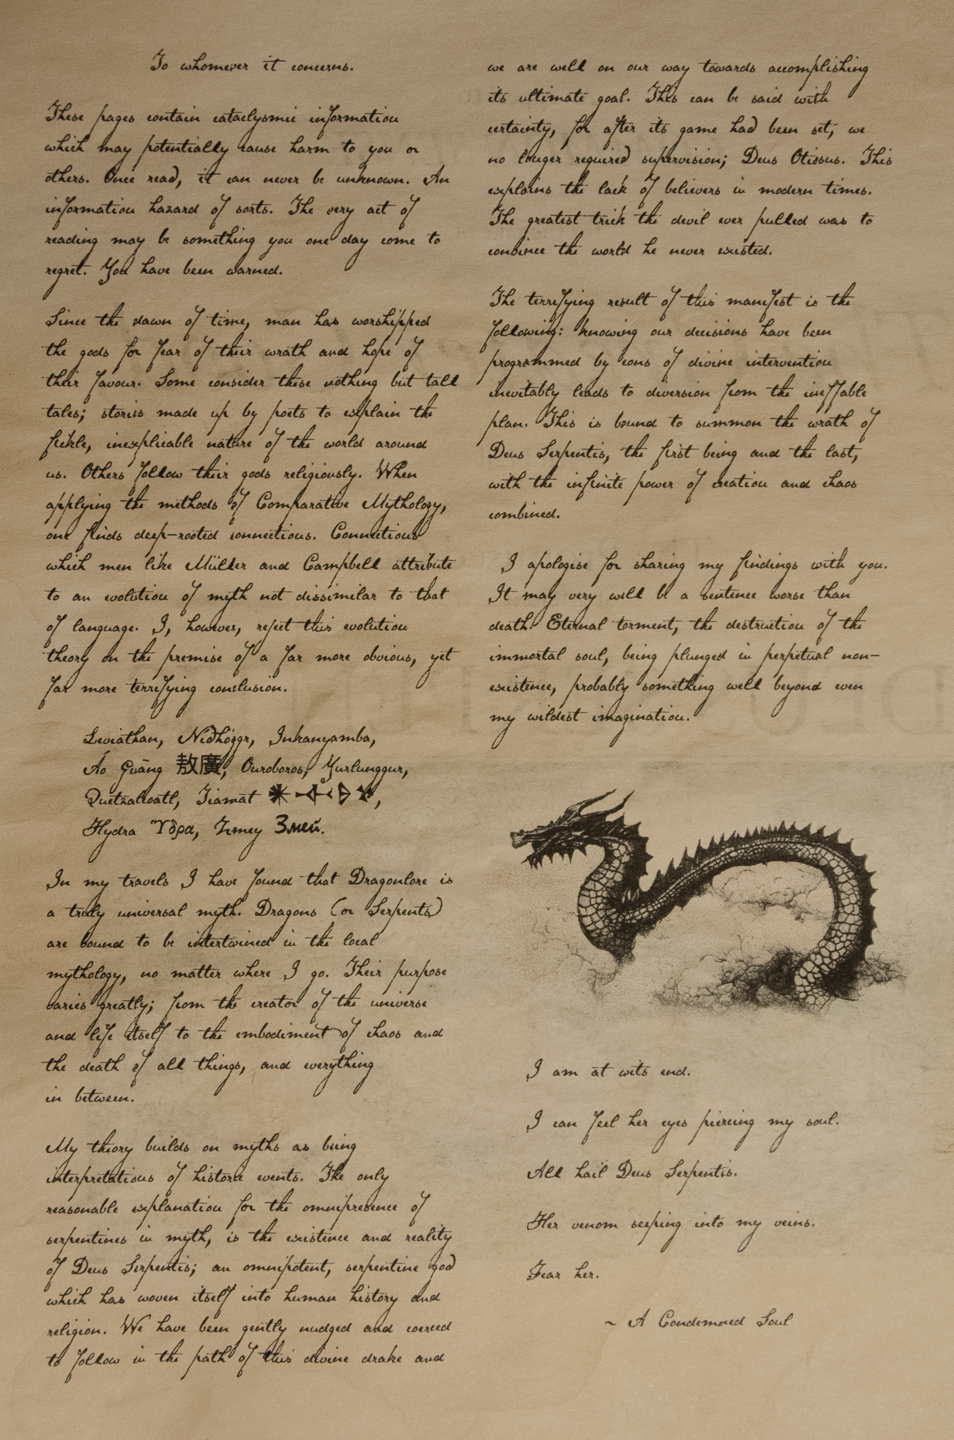 To whomever it concerns.
These pages contain cataclysmic information
which may potentially cause harm to you or
others. Once read, it can never be unknown. An
information hazard of sorts. The very act of
reading may be something you one day come to
regret. You have been warned.
Since the dawn of time, man has worshipped
the gods for fear of their wrath and hope of
their favour. Some consider these nothing but tall
tales; stories made up by poets to explain the
fickle, inexplicable nature of the world around
us. Others follow their gods religiously. When
applying the methods of Comparative Mythology,
one finds deep-rooted connections. Connections
which men like Müller and Campbell attribute
to an evolution of myth not dissimilar to that
of language. I, however, reject this evolution
theory on the premise of a far more obvious, yet
far more terrifying conclusion.
Leviathan, Nidhöggr, Inkanyamba,
Áo Guāng 敖廣, Ouroboros, Yurlunggur,
Quetzalcoatl, Tiamat
Hydra Ὕδρα, Zmey Змей.
In my travels I have found that Dragonlore is
a truly universal myth. Dragons (or Serpents)
are bound to be intertwined in the local
mythology, no matter where I go. Their purpose
varies greatly; from the creator of the universe
and life itself to the embodiment of chaos and
the death of all things, and everything
in between.
My theory builds on myths as being
interpretations of historic events. The only
reasonable explanation for the omnipresence of
serpentines in myth, is the existence and reality
of Deus Serpentis; an omnipotent, serpentine god
which has woven itself into human history and
religion. We have been gently nudged and coerced
to follow in the path of this divine drake and
we are well on our way towards accomplishing
its ultimate goal. This can be said with
certainty, for after its game had been set, we
no longer required supervision; Deus Otiosus. This
explains the lack of believers in modern times.
The greatest trick the devil ever pulled was to
convince the world he never existed.
The terrifying result of this manifest is the
following: knowing our decisions have been
programmed by eons of divine intervention
inevitably leads to diversion from the ineffable
plan. This is bound to summon the wrath of
Deus Serpentis, the first being and the last,
with the infinite power of creation and chaos
combined.
I apologise for sharing my findings with you.
It may very will be a sentence worse than
death. Eternal torment, the destruction of the
immortal soul, being plunged in perpetual non-
existence, probably something well beyond even
my wildest imagination.
I am at wits end.
I can feel her eyes piercing my soul.
All hail Deus Serpentis.
Her venom seeping into my veins.
Fear her.
~ A Condemned Soul